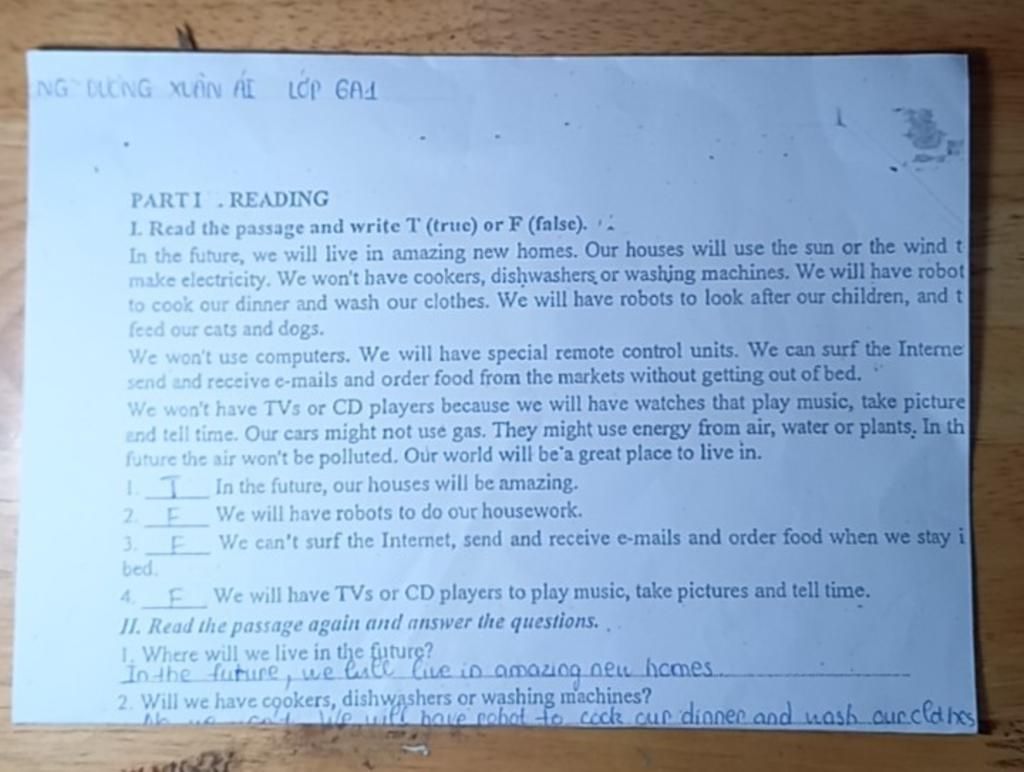 NG~ DƯƠNG XUÂN ÁI LỚP 6A1
PART I . READING
I. Read the passage and write T (true) or F (false).
In the future, we will live in amazing new homes. Our houses will use the sun or the wind t
make electricity. We won't have cookers, dishwashers or washing machines. We will have robot
to cook our dinner and wash our clothes. We will have robots to look after our children, and t
feed our cats and dogs.
We won't use computers. We will have special remote control units. We can surf the Interne
send and receive e-mails and order food from the markets without getting out of bed.
We won't have TVs or CD players because we will have watches that play music, take picture
and tell time. Our cars might not use gas. They might use energy from air, water or plants. In th
future the air won't be polluted. Our world will be a great place to live in.
1. T In the future, our houses will be amazing.
2. F We will have robots to do our housework.
3. F We can't surf the Internet, send and receive e-mails and order food when we stay i
bed.
4. F We will have TVs or CD players to play music, take pictures and tell time.
II. Read the passage again and answer the questions.
1. Where will we live in the future?
In the future, we will live in amazing new homes
2. Will we have cookers, dishwashers or washing machines?
No we We will have robot to cook our dinner and wash our clothes